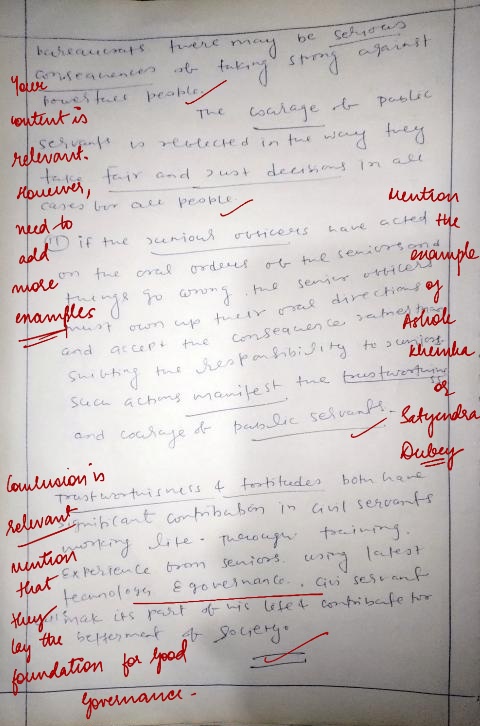 bureaucrats there may be serious
consequences of taking strong against
powerful people.
The courage of public
servants is reflected in the way they
take fair and just decisions in all
cases for all people.
(ii) if the junious officers have acted
on the oral orders of the seniors and
things go wrong. the senior officers
must own up their oral directions
and accept the consequence rather than
shifting the responsibility to junior
such actions manifest the trustworthiness
and courage of public servants.
Trustworthiness & fortitudes both have
significant contribution in civil servants
working life. Thorough training.
Experience from seniors. using latest
technology, E governance. Civi servant
mak its part of his life & contribute for
the betterment of society.
Your
content is
relevant.
However,
need to
add
more
examples
Mention
the
example
of
Ashok
Khemka
or
Satyendra
Dubey
Conclusion is
relevant
mention
that
they
lay the
foundation for good
governance.